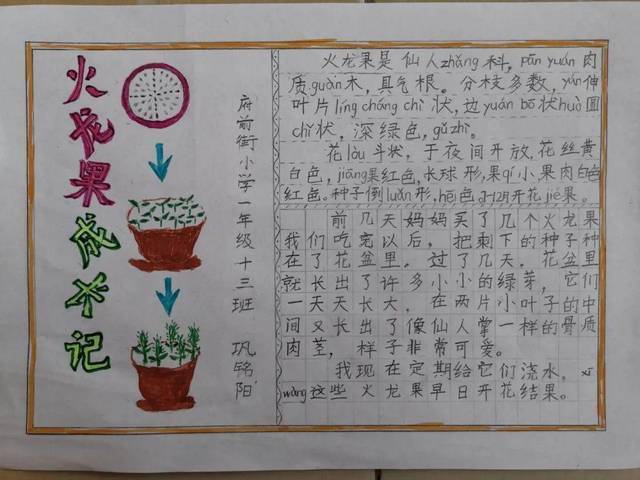 火龙果成长记
府前街小学一年级十三班 巩铭阳
火龙果是仙人zhǎng科，pān yuán肉
质guàn木，具气根。分枝多数，yán伸
叶片léng cháng chì状，边yuán bō状huò圆
chǐ状，深绿色，gǔ zhì。
花lòu斗状，于夜间开放，花丝黄
白色，jiāng果红色，长球形，果qí小果肉白色
红色。种子倒luǎn形，hēi色 7-12月开花jiē果。
前几天妈妈买了几个火龙果
我们吃完以后，把剩下的种子种
在了花盆里。过了几天，花盆里
就长出了许多小小的绿芽，它们
一天天长大，在两片小叶子的中
间又长出了像仙人掌一样的骨质
肉茎，样子非常可爱。
我现在定期给它们浇水，
wàng这些火龙果早日开花结果。